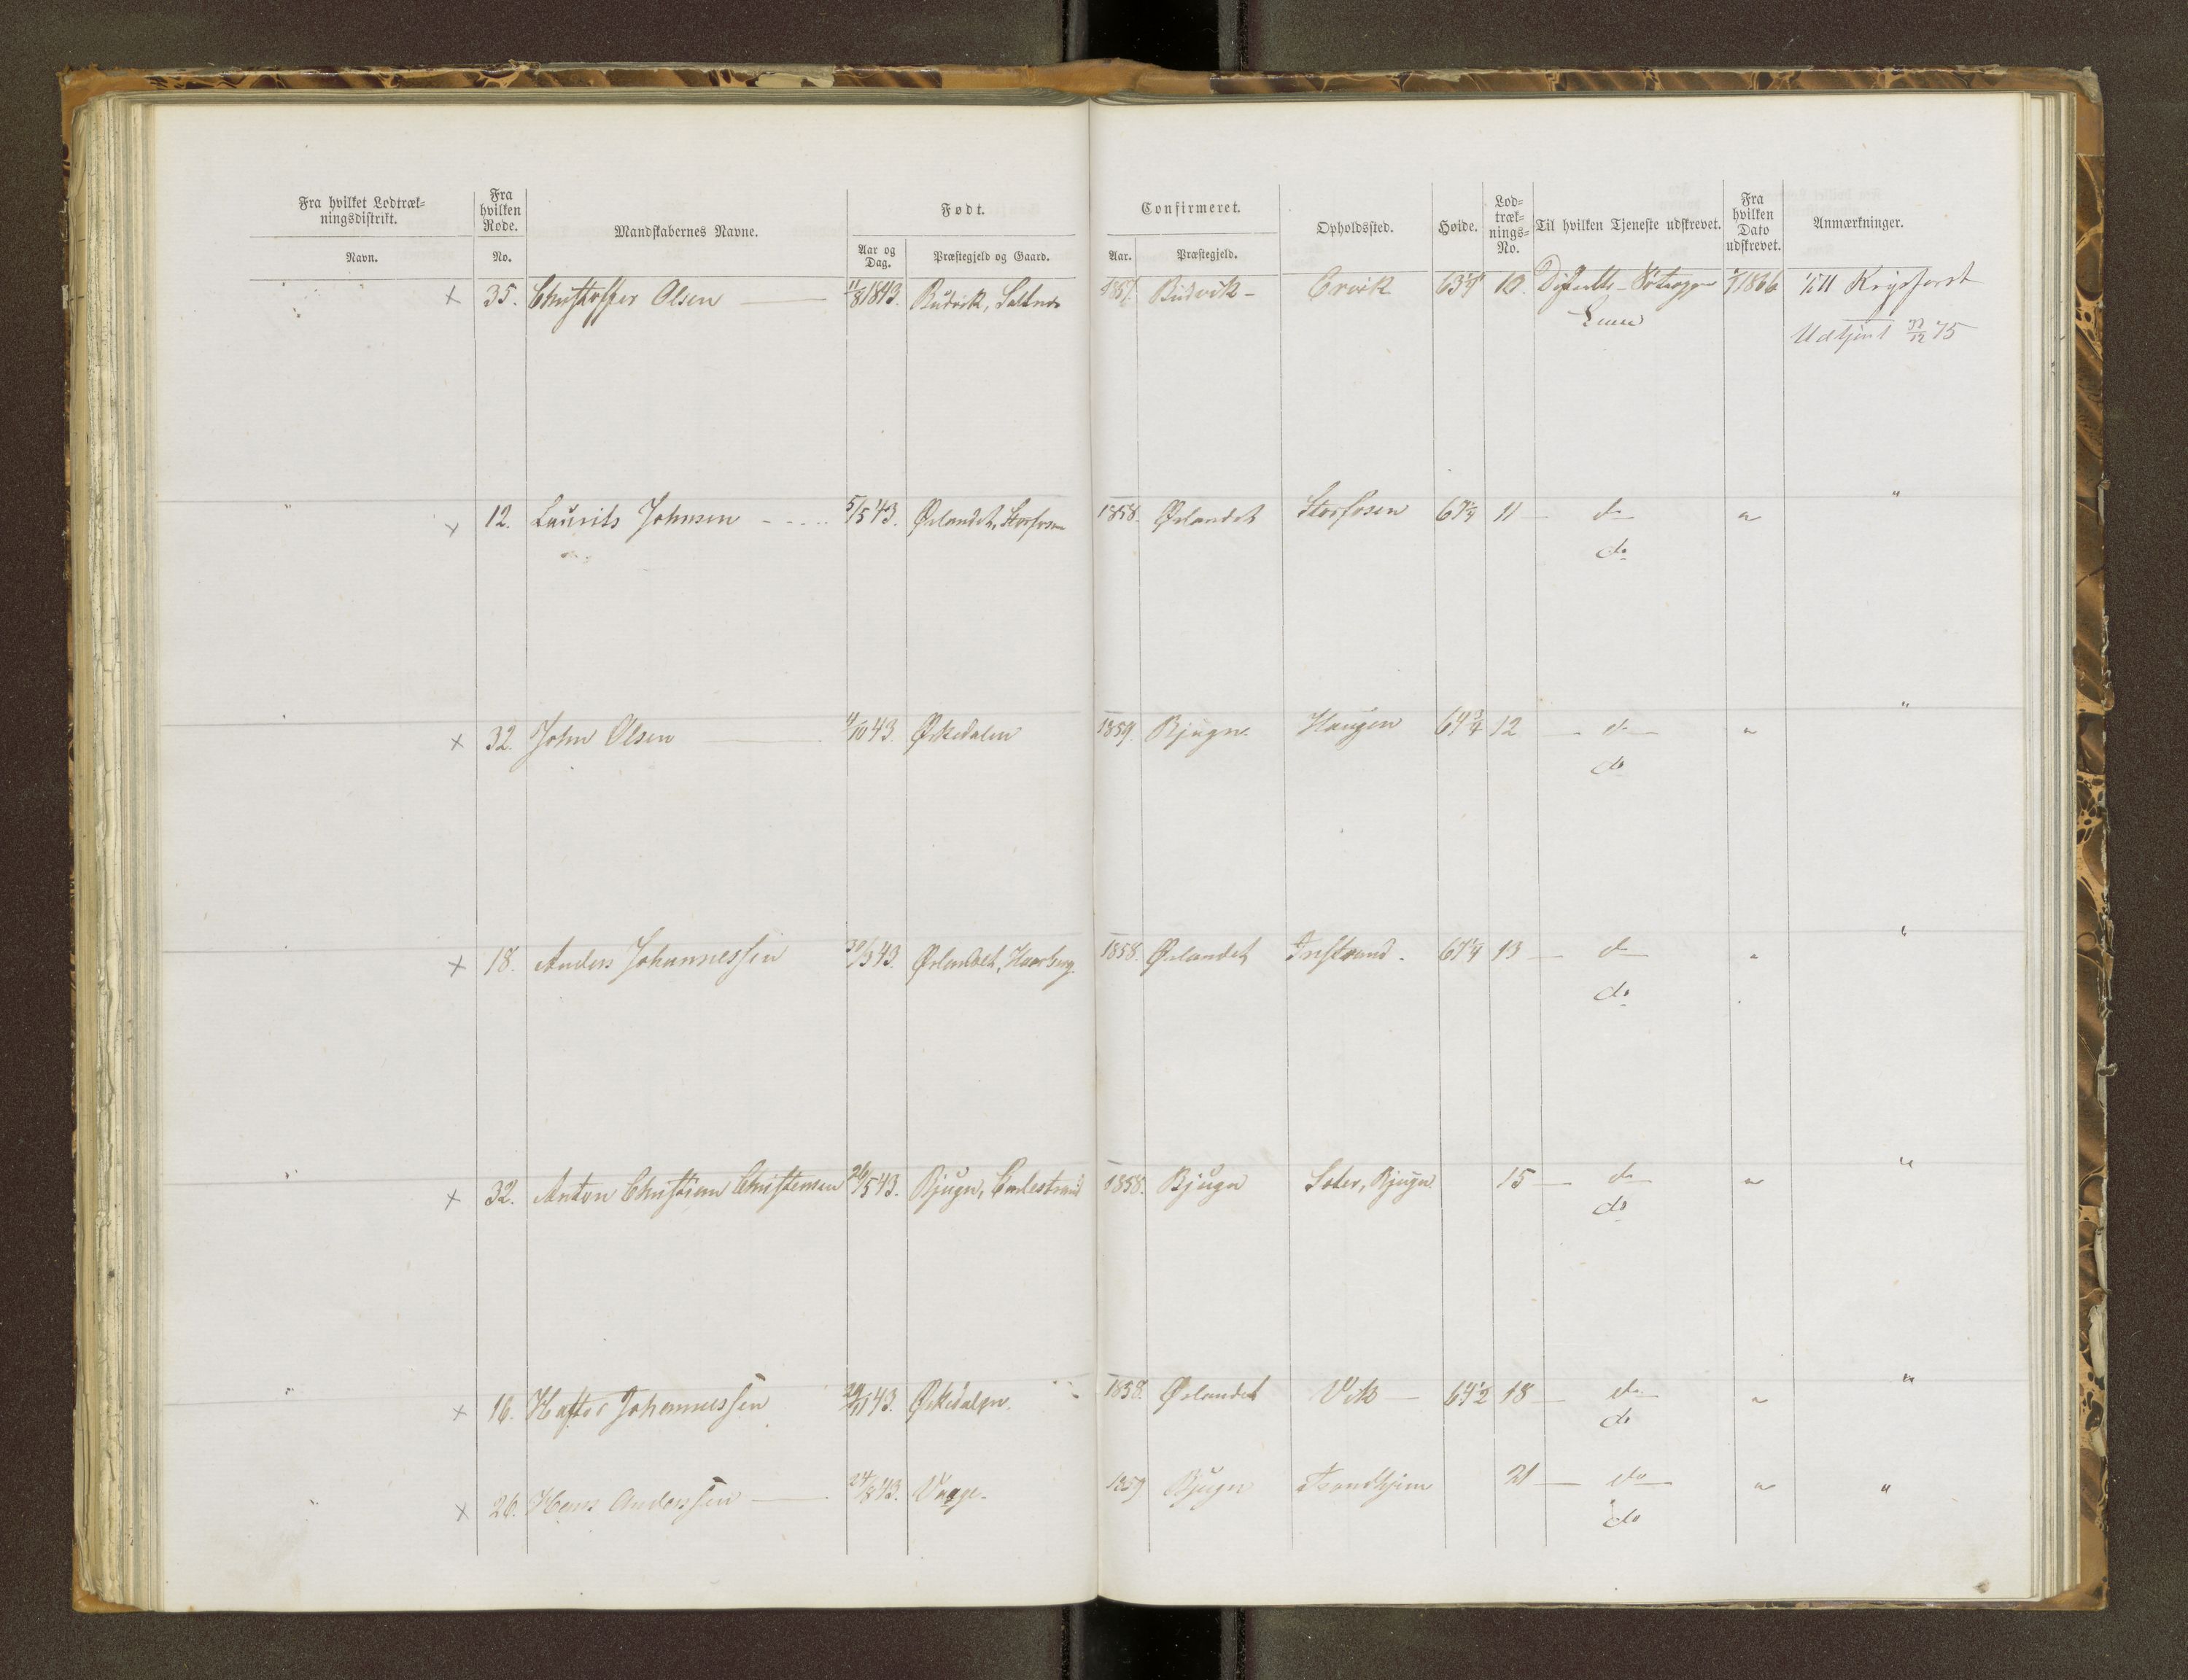 Fra hvilket Lodtræk-
ningsdistrikt.
Navn.
Fra
hvilken
Rode.
No.
Mandskabernes Navne.
Født.
Aar og
Dag.
Præstegjeld og Gaard.
Confirmeret.
Aar.
Præstegjeld.
Opholdssted.
Høide.
Lod-
træk-
nings-
No.
Til hvilken Tjeneste udskrevet.
Fra
hvilken
Dato
udskrevet.
Anmærkninger.
x 35. Christoffer Olsen 11/8 1843. Rüdvik, 1857. Rüdvik - Ervik 63 1/4 10. 1866
Udtjent 75
" x 12. Laurits Johnsen 5/5 43. Ørlandet, Storfosen 1858. Ørlandet Storfosen 67 1/4 11 — do — "
do
x 32. John Olsen 4/10 43. Ørkedalen 1859. Bjugn Haugen 64 3/4 12 — do — " "
do
x 18. Anders Johannessen 30/3 43. Ørlandet, 1858. Ørlandet 67 1/4 13 — do " "
do
x 32. Anton Christian Christensen 43. Bjugn, 1858. Bjugn Bjugn 15 — do " "
do
x 16. Johannessen 43. Ørkedalen. 1858. Ørlandet Vik 64 1/2 18 — do " "
do
x 26. Hans Anderssen 24/8 43. 1859 Bjugn Trondhjem 21 — do — " "
do